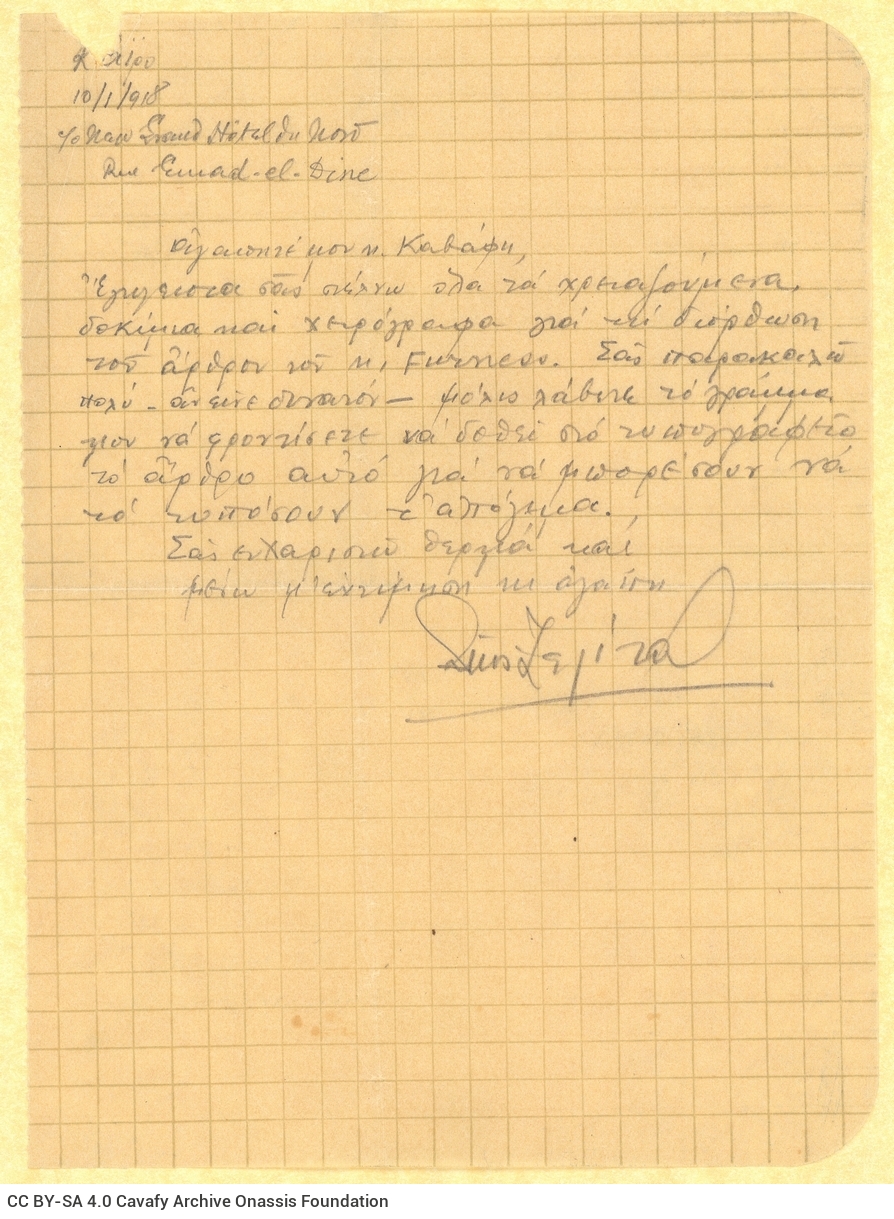 Κάϊρο
10/1/918
c/o New Grand Hôtel du Nord
Rue Emad-el-Dine
Αγαπητέ μου κ. Καβάφη,
Ἔγκλειστα σᾶς στέλνω ὅλα τά χρειαζούμενα,
δοκίμια καί χειρόγραφα γιά τή διόρθωση
τοῦ ἄρθρου τοῦ κ. Furness. Σᾶς παρακαλῶ
πολύ – ἄν εἶνε δυνατόν – μόλις λάβετε τό γράμμα
μου νά φροντίσετε νά δοθεῖ στό τυπογραφεῖο
τό ἄρθρο αὐτό γιά νά μπορέσουν νά
τό τυπώσουν τ' ἀπόγιομα.
Σᾶς εὐχαριστῶ θερμά καί
μένω μ' ἐκτίμηση κι ἀγάπη
Νίκος Ζελίτας
CC BY-SA 4.0 Cavafy Archive Onassis Foundation